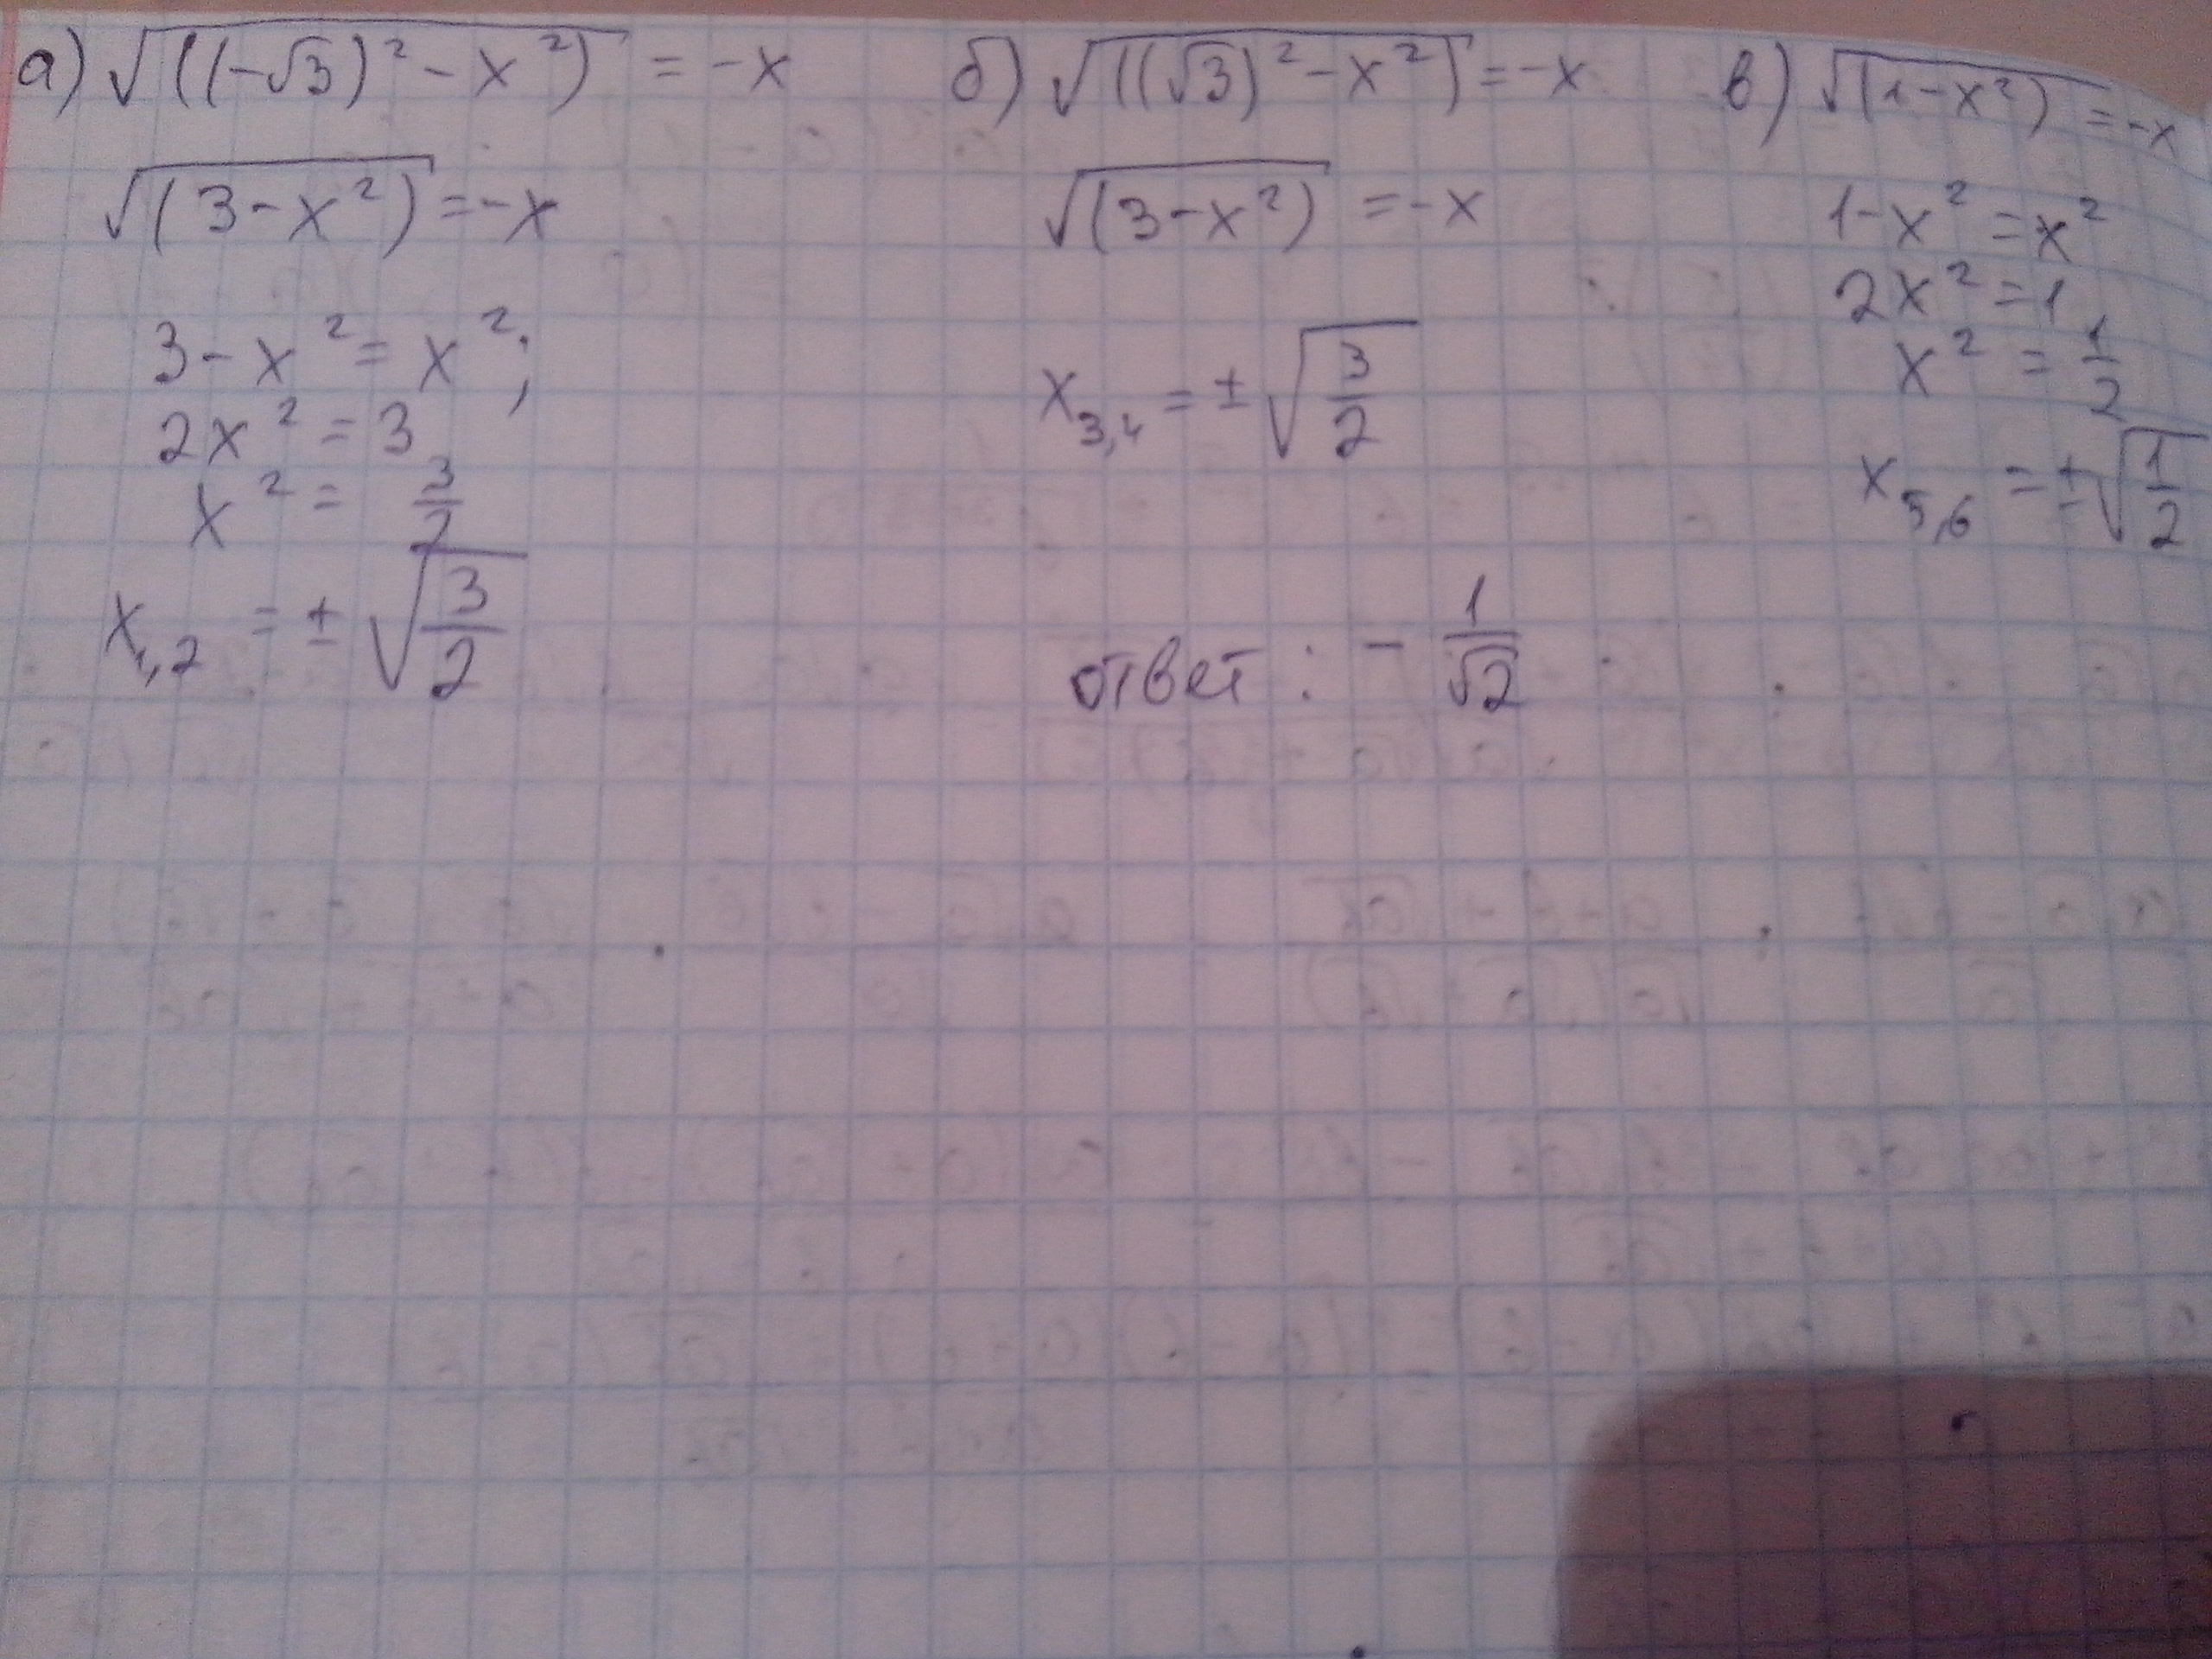 а) √((-√3)² - x²) = -x
√(3-x²) = -x
3 - x² = x²;
2x² = 3
x² = 3/2
x₁,₂ = ± √(3/2)
б) √((√3)² - x²) = -x
√(3-x²) = -x
x₃,₄ = ± √(3/2)
ответ: - 1/√2
в) √(1-x²) = -x
1-x² = x²
2x² = 1
x² = 1/2
x₅,₆ = ± √(1/2)